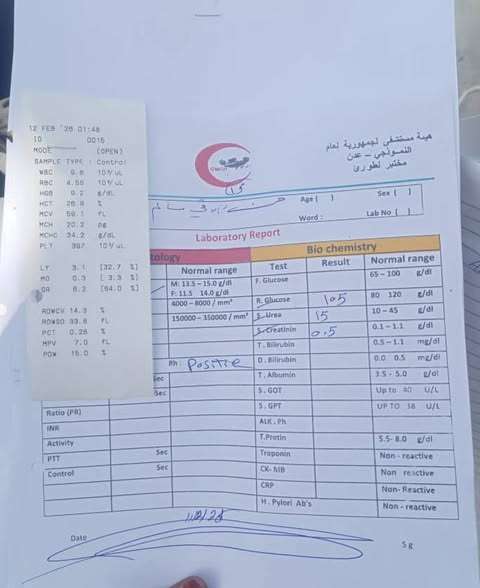 12 FEB '26 01:48
ID 0015
MODE (OPEN)
SAMPLE TYPE : Control
WBC 9.6 10³/uL
RBC 4.55 10⁶/uL
HGB 9.2 g/dL
HCT 26.9 %
MCV 59.1 fL
MCH 20.2 pg
MCHC 34.2 g/dL
PLT 397 10³/uL
LY 3.1 [32.7 %]
MO 0.3 [ 3.3 %]
GR 6.2 [64.0 %]
RDWCV 14.3 %
RDWSD 33.8 fL
PCT 0.28 %
MPV 7.0 fL
PDW 15.0 %
هيئة مستشفى الجمهورية العام
النموذجي - عدن
مختبر طوارئ
Age ( ) Sex ( )
Word : Lab No ( )
Laboratory Report
tology Bio chemistry
Normal range Test Result Normal range
M: 13.5 - 15.0 g/dl F. Glucose 65 - 100 g/dl
F: 11.5 14.0 g/dl
4000 - 8000 / mm³ R. Glucose 105 80 120 g/dl
150000 - 350000 / mm³ S. Urea 15 10 - 45 g/dl
S. Creatinin 0.5 0.1 - 1.1 g/dl
T. Bilirubin 0.5 - 1.1 mg/dl
Rh Positive D. Bilirubin 0.0 0.5 mg/dl
Sec T. Albumin 3.5 - 5.0 g/dl
Sec S. GOT Up to 40 U/L
Ratio (PR) S. GPT UP TO 38 U/L
INR ALK. Ph
Activity T.Protin 5.5- 8.0 g/dl
PTT Sec Troponin Non - reactive
Control Sec CK- MB Non reactive
CRP Non- Reactive
H. Pylori Ab's Non - reactive
Date Sg